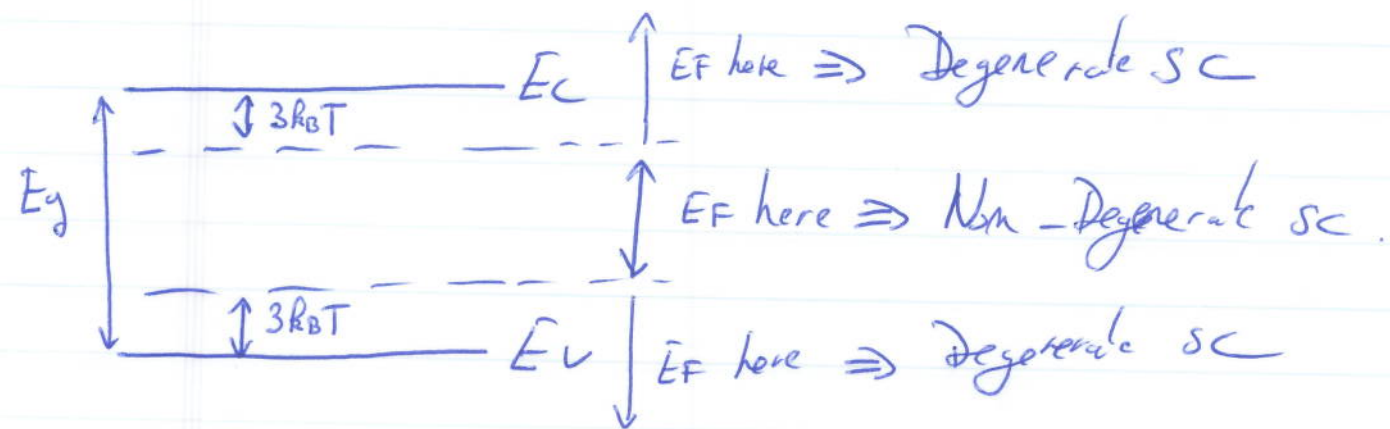 Ec EF here ⇒ Degenerate SC
3kBT
Eg EF here ⇒ Non-Degenerate SC.
3kBT
Ev EF here ⇒ Degenerate SC